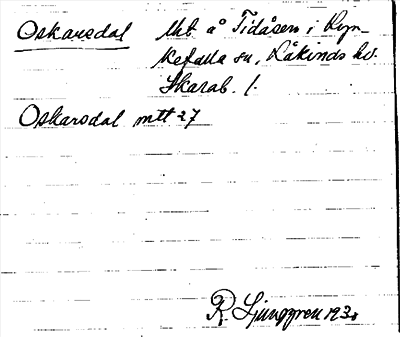 Oskarsdal Ut å Tidåsen i Kyr-
kefalla sn, Kåkinds hd.
Skarab. l.
Oskarsdal mtt 27
R. Ljunggren 1930